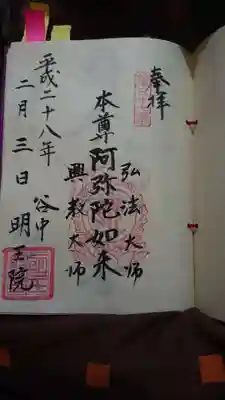 奉拝
弘法大師
本尊阿弥陀如来
興教大師
平成二十八年
二月三日
谷中 明王院